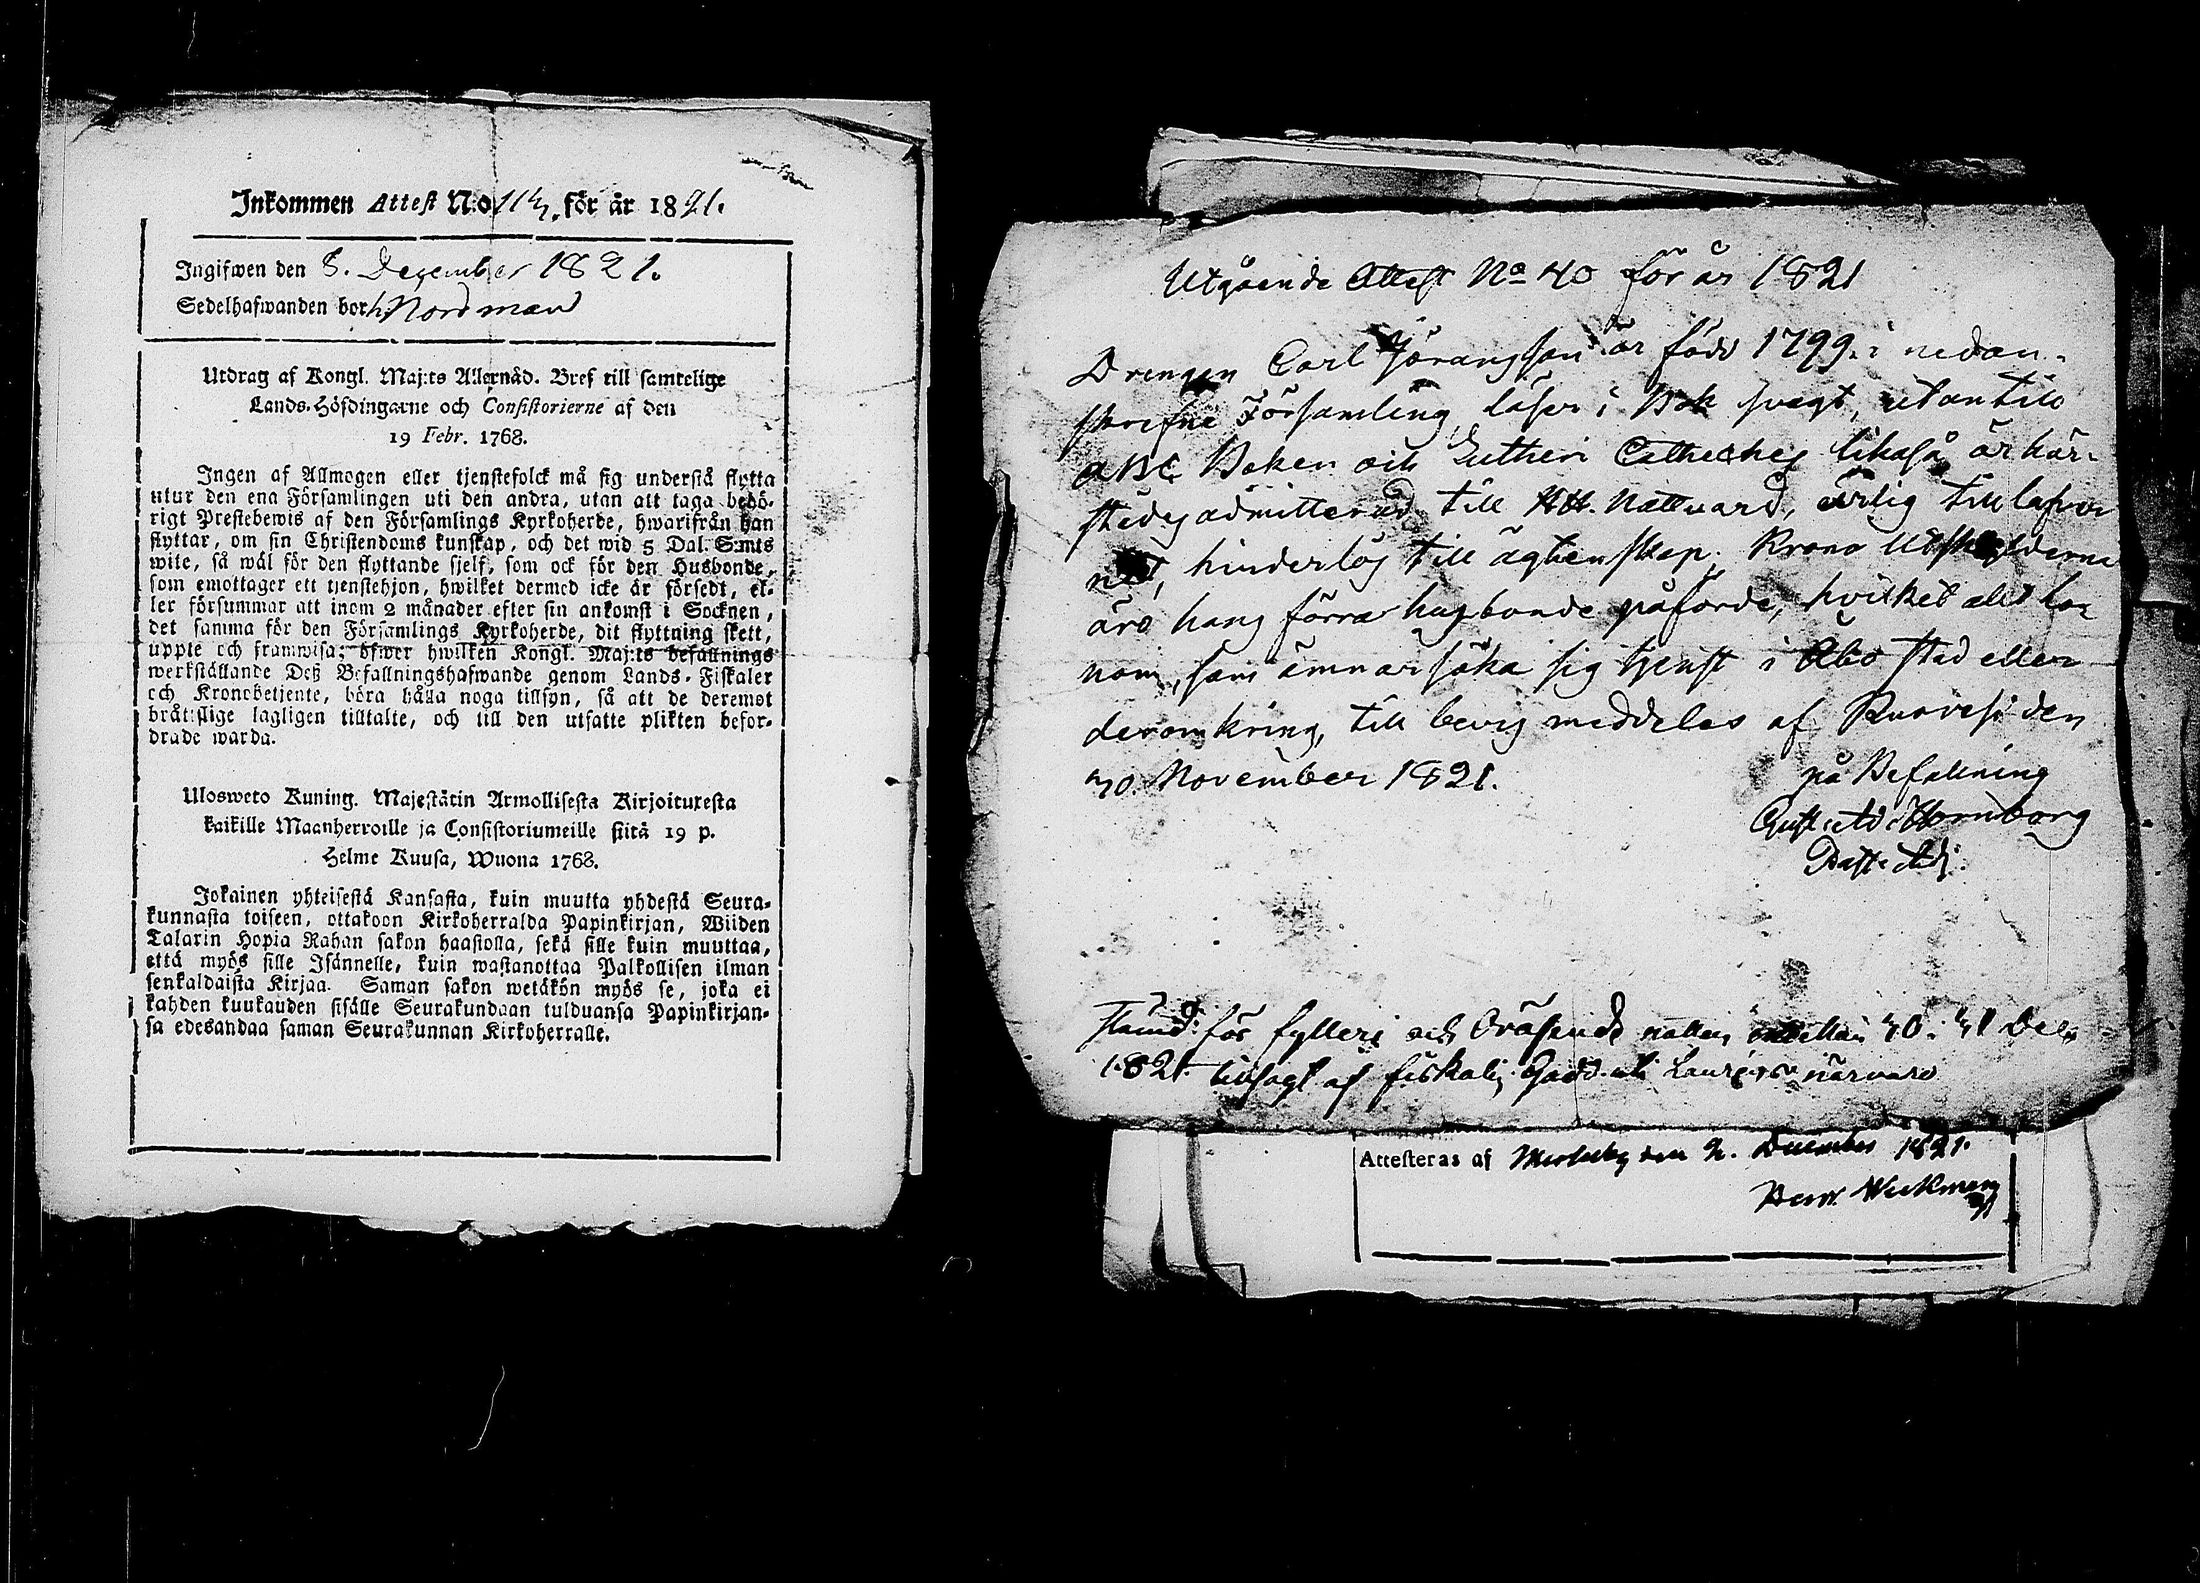 Inkommen Attest N:o 113. för år 1821.
Ingifwen den 8. December 1821.
Sedelhafwanden bor h. Nordman
Utdrag af Kongl. Maj:ts Allernåd. Bref till samtelige
Lands-Höfdingarne och Consistorierne af den
19 Febr. 1768.
Ingen af Allmogen eller tjenstefolck må sig understå flytta
utur den ena Församlingen uti den andra, utan att taga behö-
rigt Prestebewis af den Församlings Kyrkoherde, hwarifrån han
flyttar, om sin Christendoms kunskap, och det wid 5 Dal. S:mts
wite, så wäl för den flyttande sjelf, som ock för den Husbonde,
som emottager ett tjenstehjon, hwilket dermed icke är försedt, el-
ler försummar att inom 2 månader efter sin ankomst i Socknen,
det samma för den Församlings Kyrkoherde, dit flyttning skett,
uppte och framwisa; öfwer hwilken Kongl. Maj:ts befallnings
werkställande Deß Befallningshafwande genom Lands-Fiskaler
och Kronobetjente, böra hålla noga tillsyn, så att de deremot
bråttslige lagligen tilltalte, och till den utsatte plikten befor-
drade warda.
Ulosweto Kuning. Majestätin Armollisesta Kirjoituxesta
kaikille Maanherroille ja Consistoriumeille siitä 19 p.
Helme Kuusa, Wuona 1768.
Jokainen yhteisestä Kansasta, kuin muutta yhdestä Seura-
kunnasta toiseen, ottakoon Kirkoherralda Papinkirjan, Wiiden
Talarin Hopia Rahan sakon haastolla, sekä sille kuin muuttaa,
että myös sille Isännelle, kuin wastanottaa Palkollisen ilman
senkaldaista Kirjaa. Saman sakon wetäkön myös se, joka ei
kahden kuukauden sisälle Seurakundaan tulduansa Papinkirjan-
sa edesandaa saman Seurakunnan Kirkoherralle.
Utgående Attest No 40 för år 1821
Drengen Carl Jöransson är född 1799. i nedan-
skrefne Församling, läser i Bok svagt, utantill
ABC Boken och Lutheri Catheches likaså, är här-
städes admitterad till HH. Nattvard, ärlig till lefver
net, hinderlös till ägtenskap. Krono Utskylderne
äro hans förra husbonde påförde, hvilket allt ho-
nom, som ämnar söka sig tjenst i Åbo stad eller
deromkring, till bevis meddeles af Ruovesi den
30 November 1821.
på Befallning
Gust. Ad. Hornborg
Past. Adj.
för fylleri och Oväsende natten 30. 31 Dec
1821. tillsagt af fiskalis Gadd närvaro
Attesteras af den 2. December 1821.